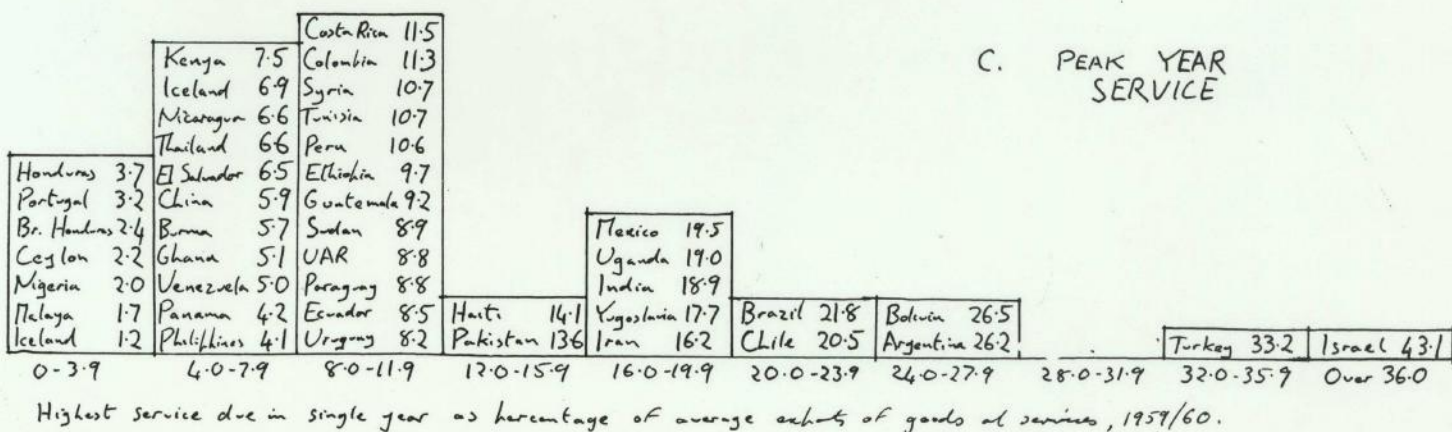 C. PEAK YEAR
SERVICE
Honduras 3.7
Portugal 3.2
Br. Honduras 2.4
Ceylon 2.2
Nigeria 2.0
Malaya 1.7
Iceland 1.2
0-3.9
Kenya 7.5
Iceland 6.9
Nicaragua 6.6
Thailand 6.6
El Salvador 6.5
China 5.9
Burma 5.7
Ghana 5.1
Venezuela 5.0
Panama 4.2
Philippines 4.1
4.0-7.9
Costa Rica 11.5
Colombia 11.3
Syria 10.7
Tunisia 10.7
Peru 10.6
Ethiopia 9.7
Guatemala 9.2
Sudan 8.9
UAR 8.8
Paraguay 8.8
Ecuador 8.5
Uruguay 8.2
8.0-11.9
Haiti 14.1
Pakistan 13.6
12.0-15.9
Mexico 19.5
Uganda 19.0
India 18.9
Yugoslavia 17.7
Iran 16.2
16.0-19.9
Brazil 21.8
Chile 20.5
20.0-23.9
Bolivia 26.5
Argentina 26.2
24.0-27.9
28.0-31.9
Turkey 33.2
32.0-35.9
Israel 43.1
Over 36.0
Highest service due in single year as percentage of average exports of goods and services, 1959/60.